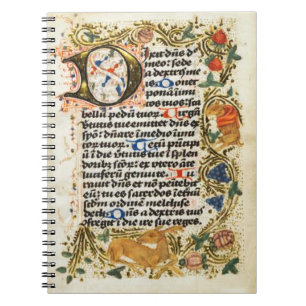 Dixit dñs d
meo: sede
a dextris me
is Donec
ponā ini
micos tuos: sca
bellū pedū tuor̄. Virgā
virtutis tue emittet dñs ex
syō: dñare ī medio inimi
cor̄ tuor̄. Tecū prīcipi
ū ī die virtutis tue ī splen
doribus scōr̄: ex utero āte
luciferū genui te. Iu
rauit dñs et nō penitebit
eū: tu es sacerdos ī eternū
scdm ordinē melchise
dech. Dñs a dextris tuis
cōfregit ī die ire sue reges.